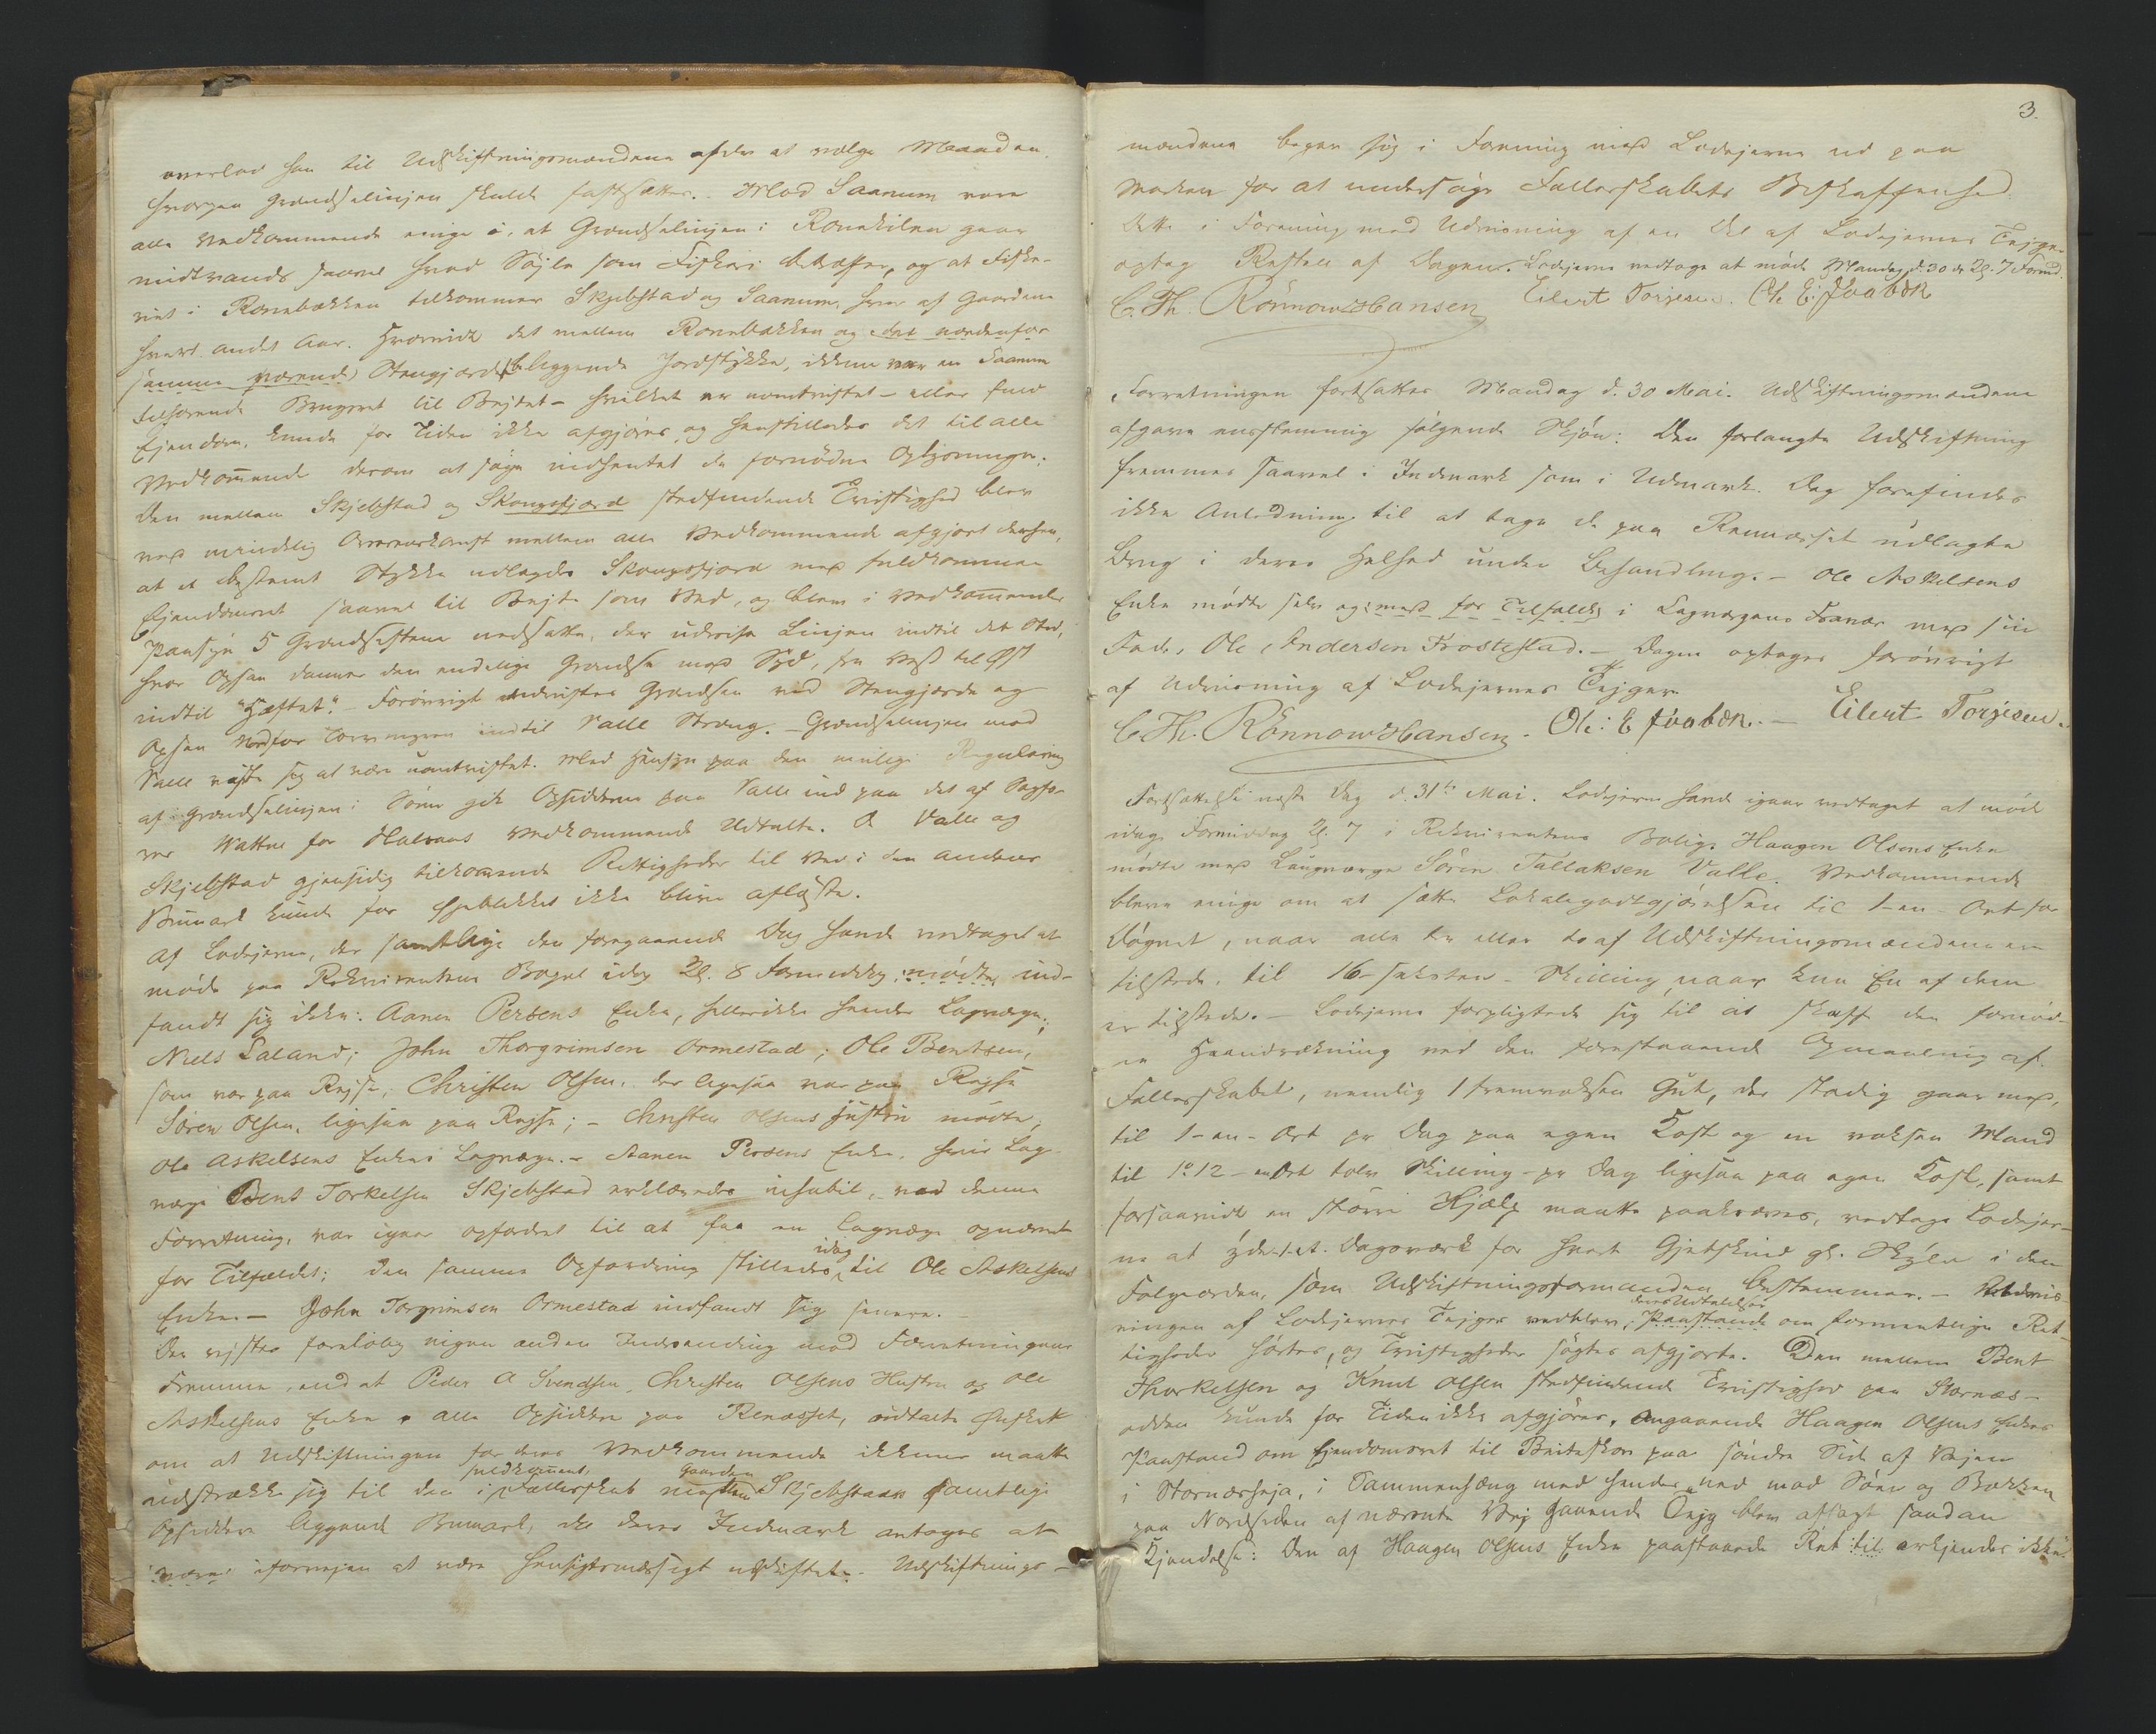 overlod han til Udskiftningsmændene efter at vælge Maaden,
hvorpaa Grændselinjen skulde fastsættes. Mod Saanum vare
alle Vedkommende enige i, at Grændselinjen i Ronekilen gaar
midtvands saavel hvad Søjle som Fiskeri betræffer, og at Fiske-
riet i Ronebækken tilkommer Skjebstad og Saanum, hver af Gaardene
hvert andet Aar. Hvorvidt det mellem Ronebækken og det nordenfor
samme værende Stengjærde beliggende Jordstykke, ikkun var en Saanum
tilhørende Brugsret til Bejtet - hvilket er uomtvistet - eller fuld
Ejendom, kunde for Tiden ikke afgjøres, og henstilledes det til alle
Vedkommende derom at søge indhentet de fornødne Oplysninger.
Den mellem Skjebstad og Skougsfjord stedfindende Tvistighed blev
ved mindelig Overenskomst mellem alle Vedkommende afgjort derhen,
at et bestemt Stykke udlagdes Skougsfjord med fuldkommen
Ejendomsret saavel til Bejte som Ved, og blev i Vedkommendes
Paasyn 5 Grændsestene nedsatte, der udvise Linjen indtil det Sted,
hvor Opsaa danner den endelige Grændse mod Syd, fra Vest til Øst
indtil "Hæftet". - Forøvrigt udvistes Grændsen ved Stengjærde og
Opsaa Nedfor indtil Valle Stræng. - Grændselinjen mod
Valle viste sig at være uomtvistet. Med Hensyn paa den mulige Regulering
af Grændselinjen i Søen gik Opsidderne paa Valle ind paa det af
ver Wattne for Halvaas Vedkommende Udtalte. De Valle og
Skjebstad gjensidig tilkommende Rettigheder til Ved i den andens
Bumark kunde for Øjeblikket ikke blive afløste.
Af Lodejerne, der samtlige den foregaaende Dag havde vedtaget at
møde paa Rekvirentens Bopæl idag Kl. 8 Formiddag, mødte ind-
fandt sig ikke: Aanen Persens Enke, hellerikke hendes Lagværge;
Niels Laland; John Thorgrimsen Ormestad; Ole Bentsen,
som var paa Rejse, Christen Olsen, der ligesaa var paa Rejse
Søren Olsen, ligesaa paa Rejse; - Christen Olsens Hustru mødte,
Ole Askelsens Enkes Lagværge. - Aanen Persens Enke, hvis Lag-
værge Bent Torkelsen Skjebstad erklæredes inhabil, ved denne
Forretning, var igaar opfordret til at faa en Lagværge opnævnt
for Tilfældet; den samme Opfordring stilledes idag til Ole Askelsens
Enke. - John Torgrimsen Ormestad indfandt sig senere.
Der rejstes foreløbig ingen anden Indvending mod Forretningens
Fremme, end at Peder A Svendsen, Christen Olsens Hustru og Ole
Askelsens Enke, alle Opsiddere paa Renæsset, udtalte Ønsket
om at Udskiftningen for deres Vedkommende ikkun maatte
udstrække sig til den i fuldkomment Fællesskab mellem Gaarden Skjebstads samtlige
Opsiddere liggende Bumark, da deres Indmark antages at
være iforvejen at være hensigtsmæssigt udskiftet. Udskiftnings-
3.
mændene begav sig i Forening med Lodejerne ud paa
Marken for at undersøge Fællesskabets Beskaffenhed.
Dette i Forening med Udvisning af en Del af Lodejernes Tejger
optog Resten af Dagen. Lodejerne vedtoge at møde Mandag d. 30 ds Kl. 7 Formd.
C. Th. RönnowHansen Eilert Torjesen. Ole E. Faabæk
Forretningen fortsattes Mandag d. 30 Mai. Udskiftningsmændene
afgave eenstemmig følgende Skjøn: Den forlangte Udskiftning
fremmes saavel i Indmark som i Udmark. Dog forefindes
ikke Anledning til at tage de paa Renæsset udlagte
Brug i deres Helhed under Behandling. - Ole Askelsens
Enke mødte selv og med for Tilfældet i Lagværgens Fravær med sin
Fader, Ole Andersen Frostestad. - Dagen optages forøvrigt
af Udvisning af Lodejernes Tejger.
C Th. RönnowHansen. Ole: E Faabæk. - Eilert Torjesen.
Fortsættelse næste Dag d. 31te Mai. Lodejerne havde igaar vedtaget at møde
idag Formiddag Kl. 7 i Rekvirentens Bolig. Haagen Olsens Enke
mødte med Laugværge Sören Tallaksen Valle. Vedkommende
bleve enige om at sætte Lokalegodtgjørelsen til 1 - en - Ort for
Døgnet, naar alle tre eller to af Udskiftningsmændene ere
tilstede, til 16 - seksten - Skilling naar kun En af dem
er tilstede. - Lodejerne forpligtede sig til at skaffe den fornød-
ne Haandrækning ved den forestaaende Opmaaling af
Fællesskabet, nemlig 1 fremvoksen Gut, der stadig gaar med,
til 1 - en - Ort pr Dag paa egen Kost og en voksen Mand
til 1 o 12 - en Ort tolv Skilling - pr Dag ligesaa paa egen Kost, samt
forsaavidt en større Hjælp maatte paakræves, vedtage Lodejer-
ne at yde - 1 - et Dagsværk for hvert Gjetskind gl. Skyld i den
Følgeorden, som Udskiftningsformanden bestemmer. - Udvis-
ningen af Lodejernes Tejger vedblev, deres Udtalelser Paastande om formentlige Ret-
tigheder hørtes, og Tvistigheder søgtes afgjorte. Den mellem Bent
Thorkelsen og Knut Olsen stedfindende Tvistighed paa Stornæs-
odden kunde for Tiden ikke afgjøres. Angaaende Haagen Olsens Enkes
Paastand om Ejendomsret til Beiteskov paa søndre Side af Vejen
i Stornæsheja, i Sammenhæng med hendes ned mod Søen og Bækken
paa Nordsiden af nævnte Vej gaaende Tejg blev afsagt saadan
Kjendelse: Den af Haagen Olsens Enke paastaaede Ret til erkjendes ikke